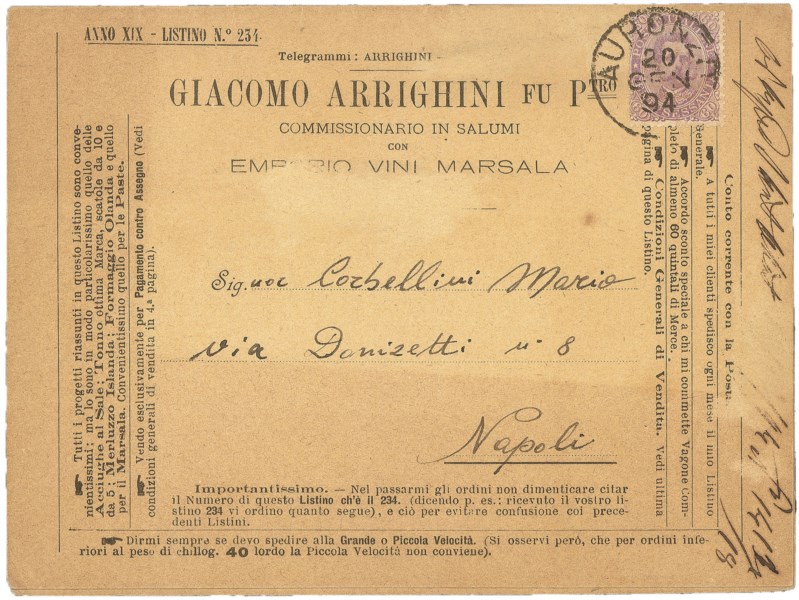 ANNO XIX - LISTINO N.º 234
Telegrammi: ARRIGHINI
GIACOMO ARRIGHINI FU PTRO
COMMISSIONARIO IN SALUMI
CON
EMPORIO VINI MARSALA
AURONZO
20
GEN
94
Sig.nor Corbellini Mario
via Donizetti n. 8
Napoli
Importantissimo. — Nel passarmi gli ordini non dimenticare citar
il Numero di questo Listino ch'è il 234. (dicendo p. es.: ricevuto il vostro li-
stino 234 vi ordino quanto segue), e ciò per evitare confusione coi prece-
denti Listini.
☛ Dirmi sempre se devo spedire alla Grande o Piccola Velocità. (Si osservi però, che per ordini infe-
riori al peso di chillog. 40 lordo la Piccola Velocità non conviene).
☛ Tutti i progetti riassunti in questo Listino sono conve-
nientissimi: ma lo sono in modo particolarissimo quello delle
Acciughe al Sale; Tonno ottima Marca, scatole da 10 e
da 5; Merluzzo Islanda; Formaggio Olanda e quello
per il Marsala. Convenientissimo quello per le Paste.
☛ Vendo esclusivamente per Pagamento contro Assegno (Vedi
condizioni generali di vendita in 4.ª pagina).
Conto corrente con la Posta.
☛ A tutti i miei clienti spedisco ogni mese il mio Listino
Generale.
☛ Accordo sconto speciale a chi mi commette Vagone Com-
pleto di almeno 60 quintali di Merce.
☛ Condizioni Generali di Vendita. Vedi ultima
pagina di questo Listino.